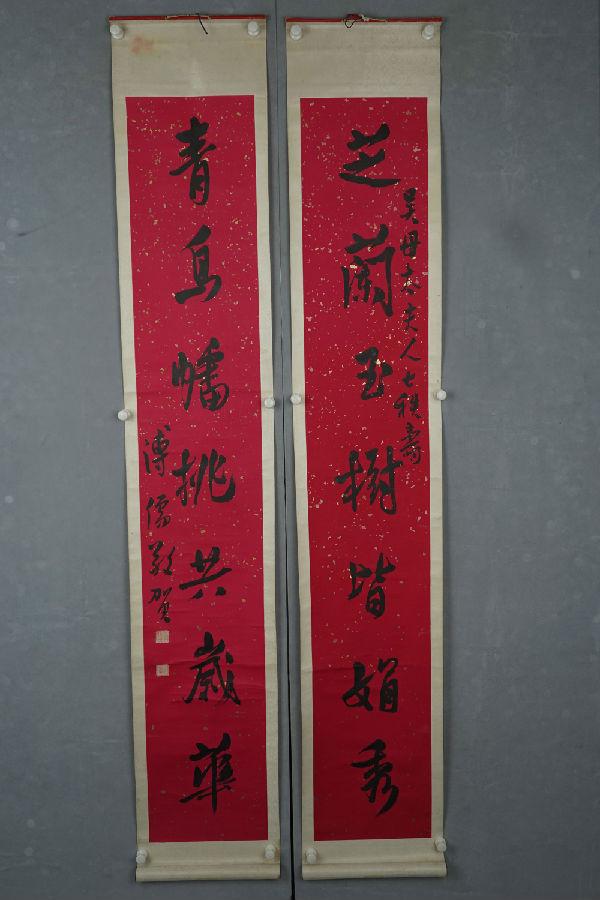 吳母太夫人七秩壽
芝蘭玉樹皆娟秀
青鳥幡桃共歲華
溥儒敬賀